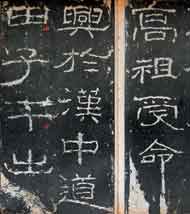 高祖受命
興於漢中道
由子午出